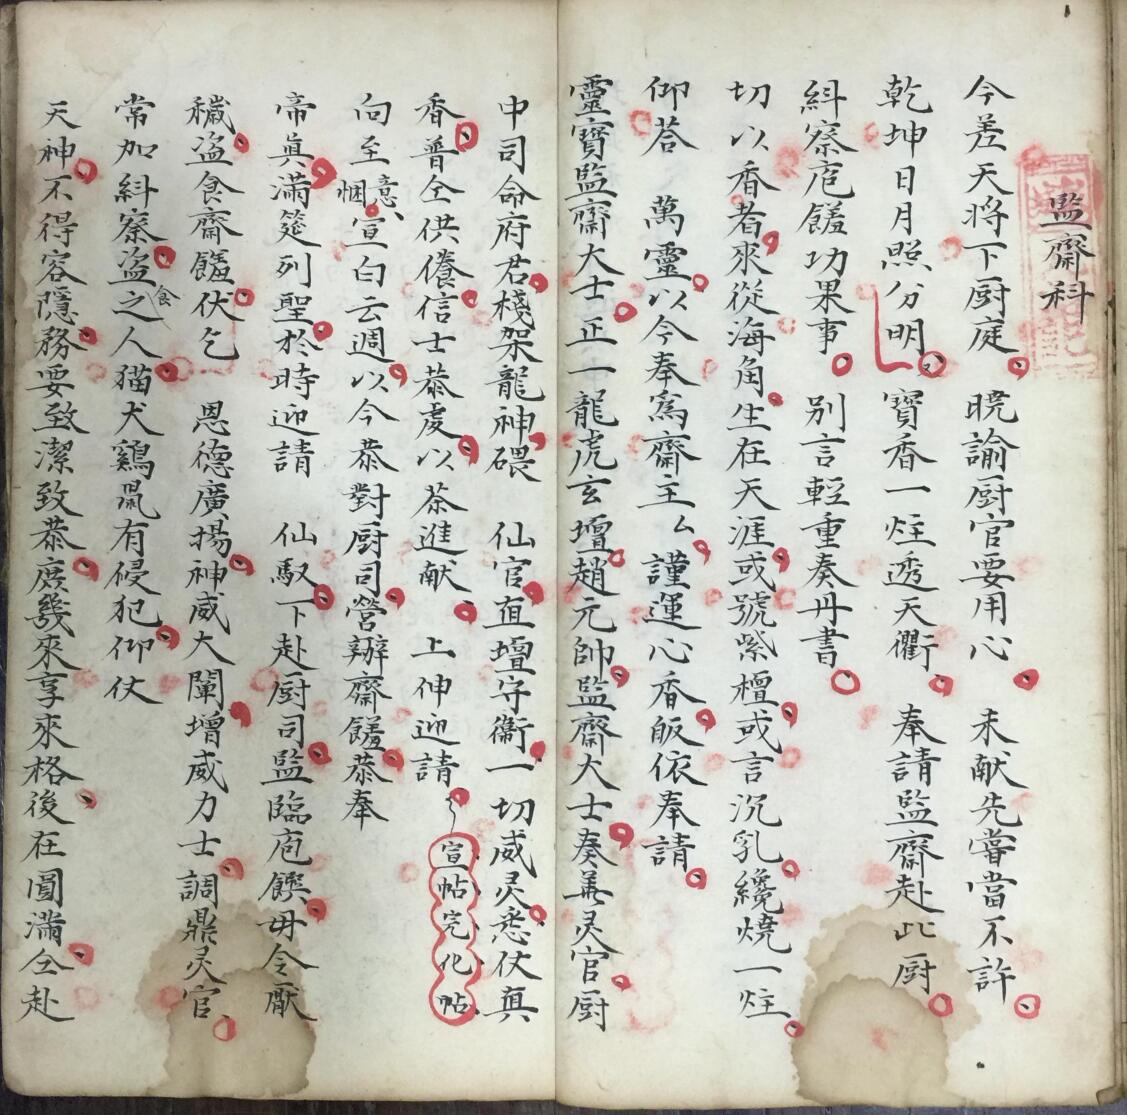 監齋科
今差天將下厨庭 曉諭厨官要用心 未献先嘗當不許
乾坤日月照分明 寶香一炷透天衢 奉請監齋赴此厨
糾察庖饈功果事 别言輕重奏丹書
切以香者來從海角生在天涯或號紫檀或言沉乳纔燒一炷
仰荅 萬靈以今奉為齋主厶謹運心香皈依奉請
靈寶監齋大士正一龍虎玄壇趙元帥監齋大士奏善灵官厨
中司命府君棧架龍神碨 仙官直壇守衛一切威灵悉仗真
香普仝供養信士恭虔以茶進献 上伸迎請
宣帖完化帖
向至悃意宣白云週以今恭對厨司營辦齋饈恭奉
帝真滿筵列聖於時迎請 仙馭下赴厨司監臨庖饌毋令厭
穢盗食齋饈伏乞 恩德廣揚神威大闡增威力士調鼎灵官
常加糾察盗食之人猫犬鷄鼠有侵犯仰仗
天神不得容隱務要致潔致恭庻幾來享來格後在圓滿仝赴